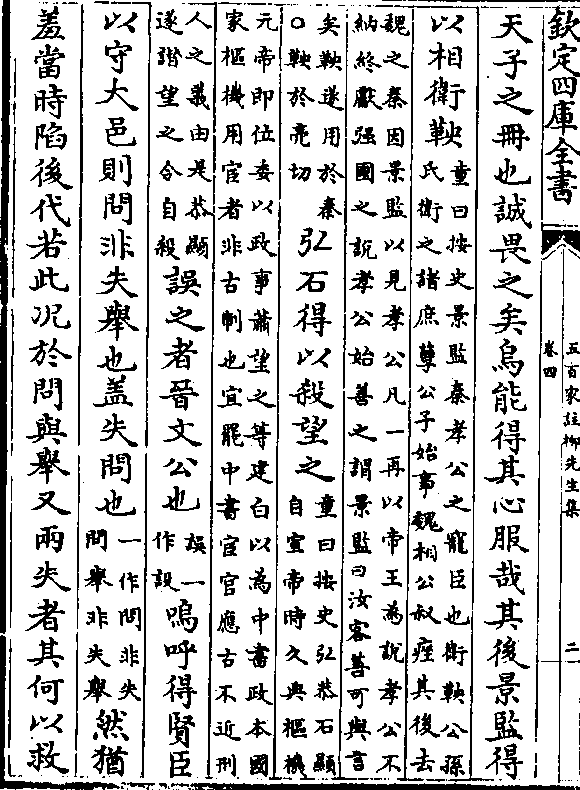 欽定四庫全書
五百家註柳先生集
卷四
二
天子之冊也誠畏之矣烏能得其心服哉其後景監得
以相衛鞅
童曰按史景監秦孝公之寵臣也衛鞅公孫
氏衛之諸庶孽公子始事魏相公叔痤其後去
魏之秦因景監以見孝公凡一再以帝王為說孝公不
納終獻强國之說孝公始善之謂景監曰汝客善可與言
矣鞅遂用於秦
○鞅於亮切
弘石得以殺望之
童曰按史弘恭石顯
自宣帝時久典樞機
元帝即位委以政事蕭望之等建白以為中書政本國
家樞機用宦者非古制也宜罷中書宦官應古不近刑
人之義由是恭顯
遂譖望之令自殺
誤之者晉文公也
誤一
作設
嗚呼得賢臣
以守大邑則問非失舉也盖失問也
一作問非失
問舉非失舉
然猶
羞當時陷後代若此况於問與舉又兩失者其何以救